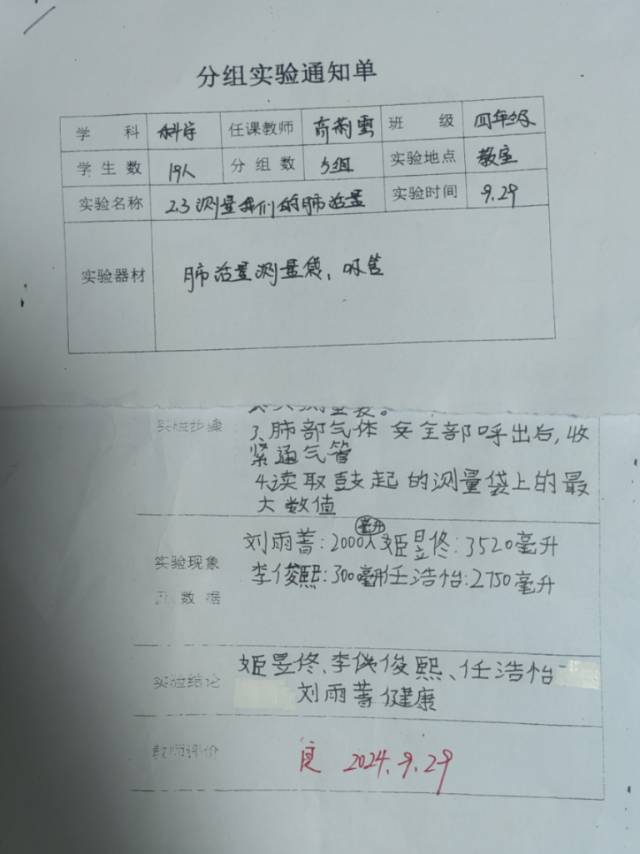 分组实验通知单
学 科 科学 任课教师 高莉雪 班 级 四年级
学生数 19人 分组数 5组 实验地点 教室
实验名称 2.3 测量我们的肺活量 实验时间 9.29
实验器材 肺活量测量袋、吸管
实验步骤
3.肺部气体 安全部呼出后,收
紧通气管
4.读取鼓起的测量袋上的最
大数值
刘雨蓄:2000毫升 姬昱佟:3520毫升
实验现象
李俊熙:300毫升 任浩怡:2750毫升
数据
姬昱佟、李俊熙、任浩怡
实验结论
刘雨蓄健康
教师评价 良 2024.9.29